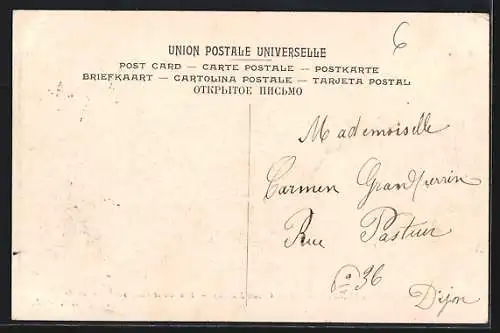 6
UNION POSTALE UNIVERSELLE
POST CARD — CARTE POSTALE — POSTKARTE
BRIEFKAART — CARTOLINA POSTALE — TARJETA POSTAL
ОТКРЫТОЕ ПИСЬМО
Mademoiselle
Carmen Grandperrin
Rue Pasteur
36
Dijon